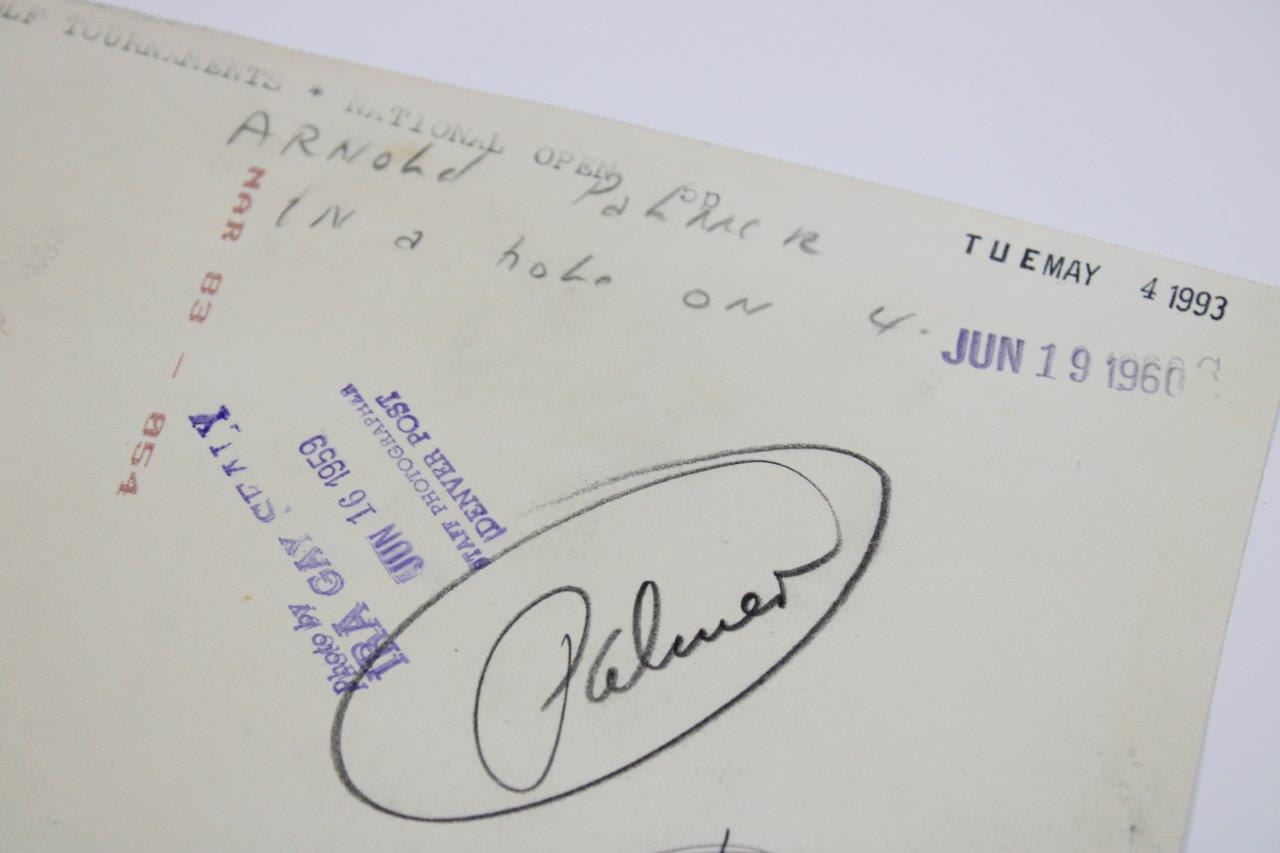 LF TOURNAMENTS * NATIONAL OPEN
ARNOLD PALMER
IN a hole ON 4.
TUE MAY 4 1993
JUN 19 1960
MAR 83 — 054
Photo by
IRA GAY SEALY
JUN 16 1959
STAFF PHOTOGRAPHER
(DENVER POST
Palmer